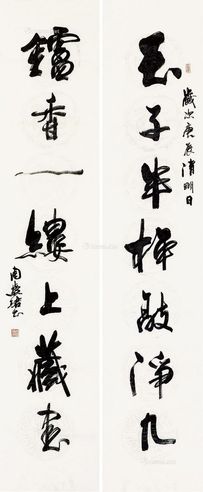 玉子半枰敲淨几
歲次庚辰清明日
鑪香一縷上藏書
周慧珺書